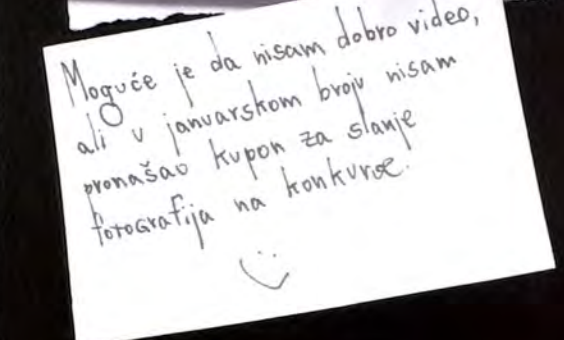 Moguće je da nisam dobro video,
ali u januarskom broju nisam
pronašao kupon za slanje
fotografija na konkurse.